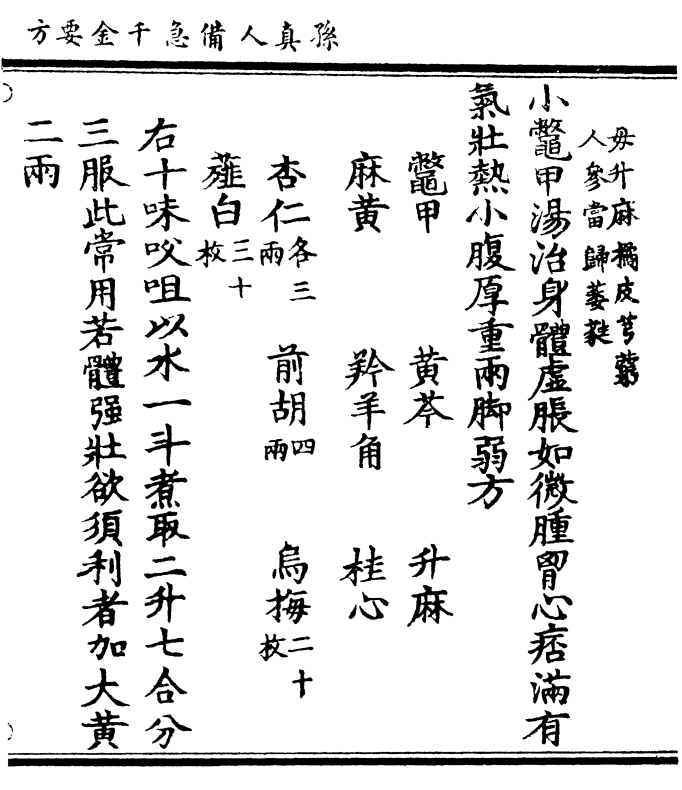 孫真人備急千金要方
毋升麻橘皮芎藭
人參當歸萎蕤
小鼈甲湯治身體虛脹如微腫胷心痞滿有
氣壯熱小腹厚重兩脚弱方
鼈甲 黄芩 升麻
麻黄 羚羊角 桂心
杏仁各三兩 前胡四兩 烏梅二十枚
薤白三十枚
右十味㕮咀以水一斗煮取二升七合分
三服此常用若體强壯欲須利者加大黄
二兩